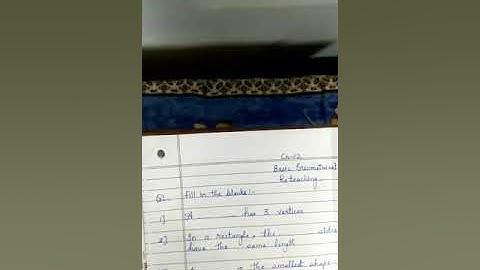 Ch-12
Basic Geometrical
Reteaching
Q1- Fill in the blanks:-
1) A ______ has 3 vertices
2) In a rectangle, the ______ sides
have the same length
is the smallest shape